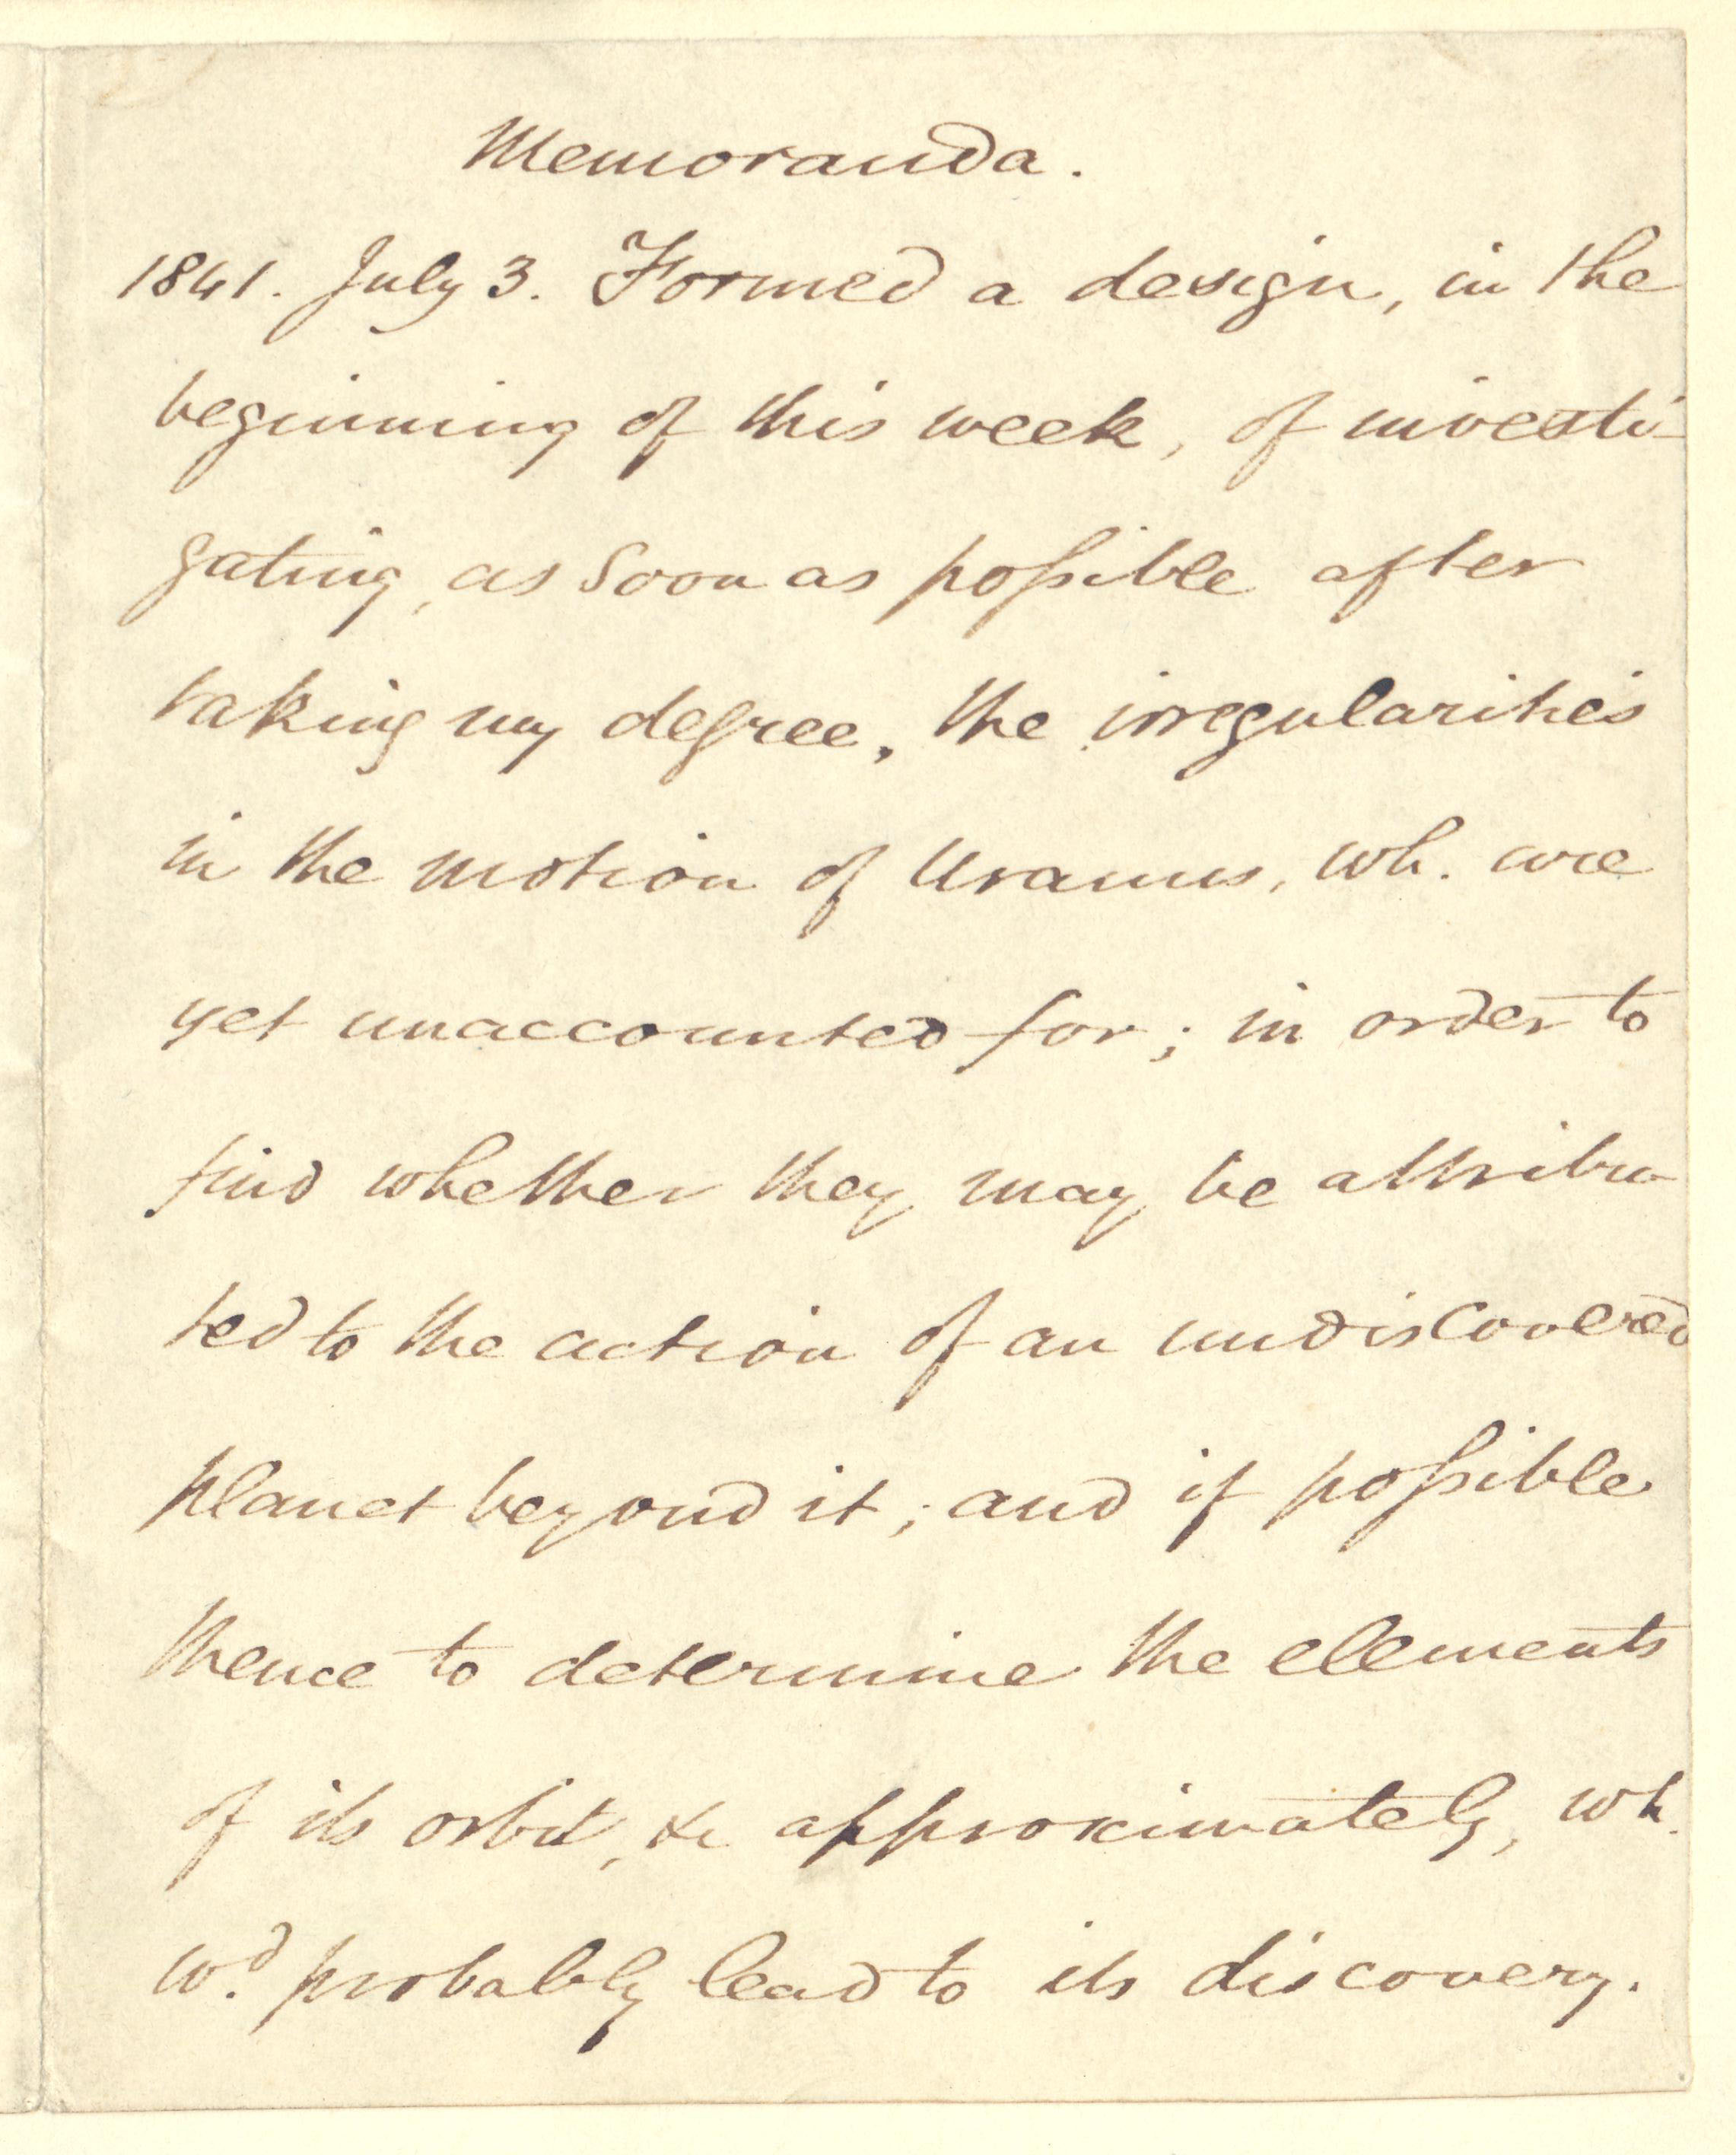 Memoranda.
1841. July 3. Formed a design, in the
beginning of this week, of investi-
gating, as soon as poſsible after
taking my degree, the irregularities
in the motion of Uranus, wh. are
yet unaccounted for; in order to
find whether they may be attribu-
ted to the action of an undiscovered
planet beyond it; and if poſsible
thence to determine the elements
of its orbit, &c approximately, wh.
wᵈ. probably lead to its discovery.